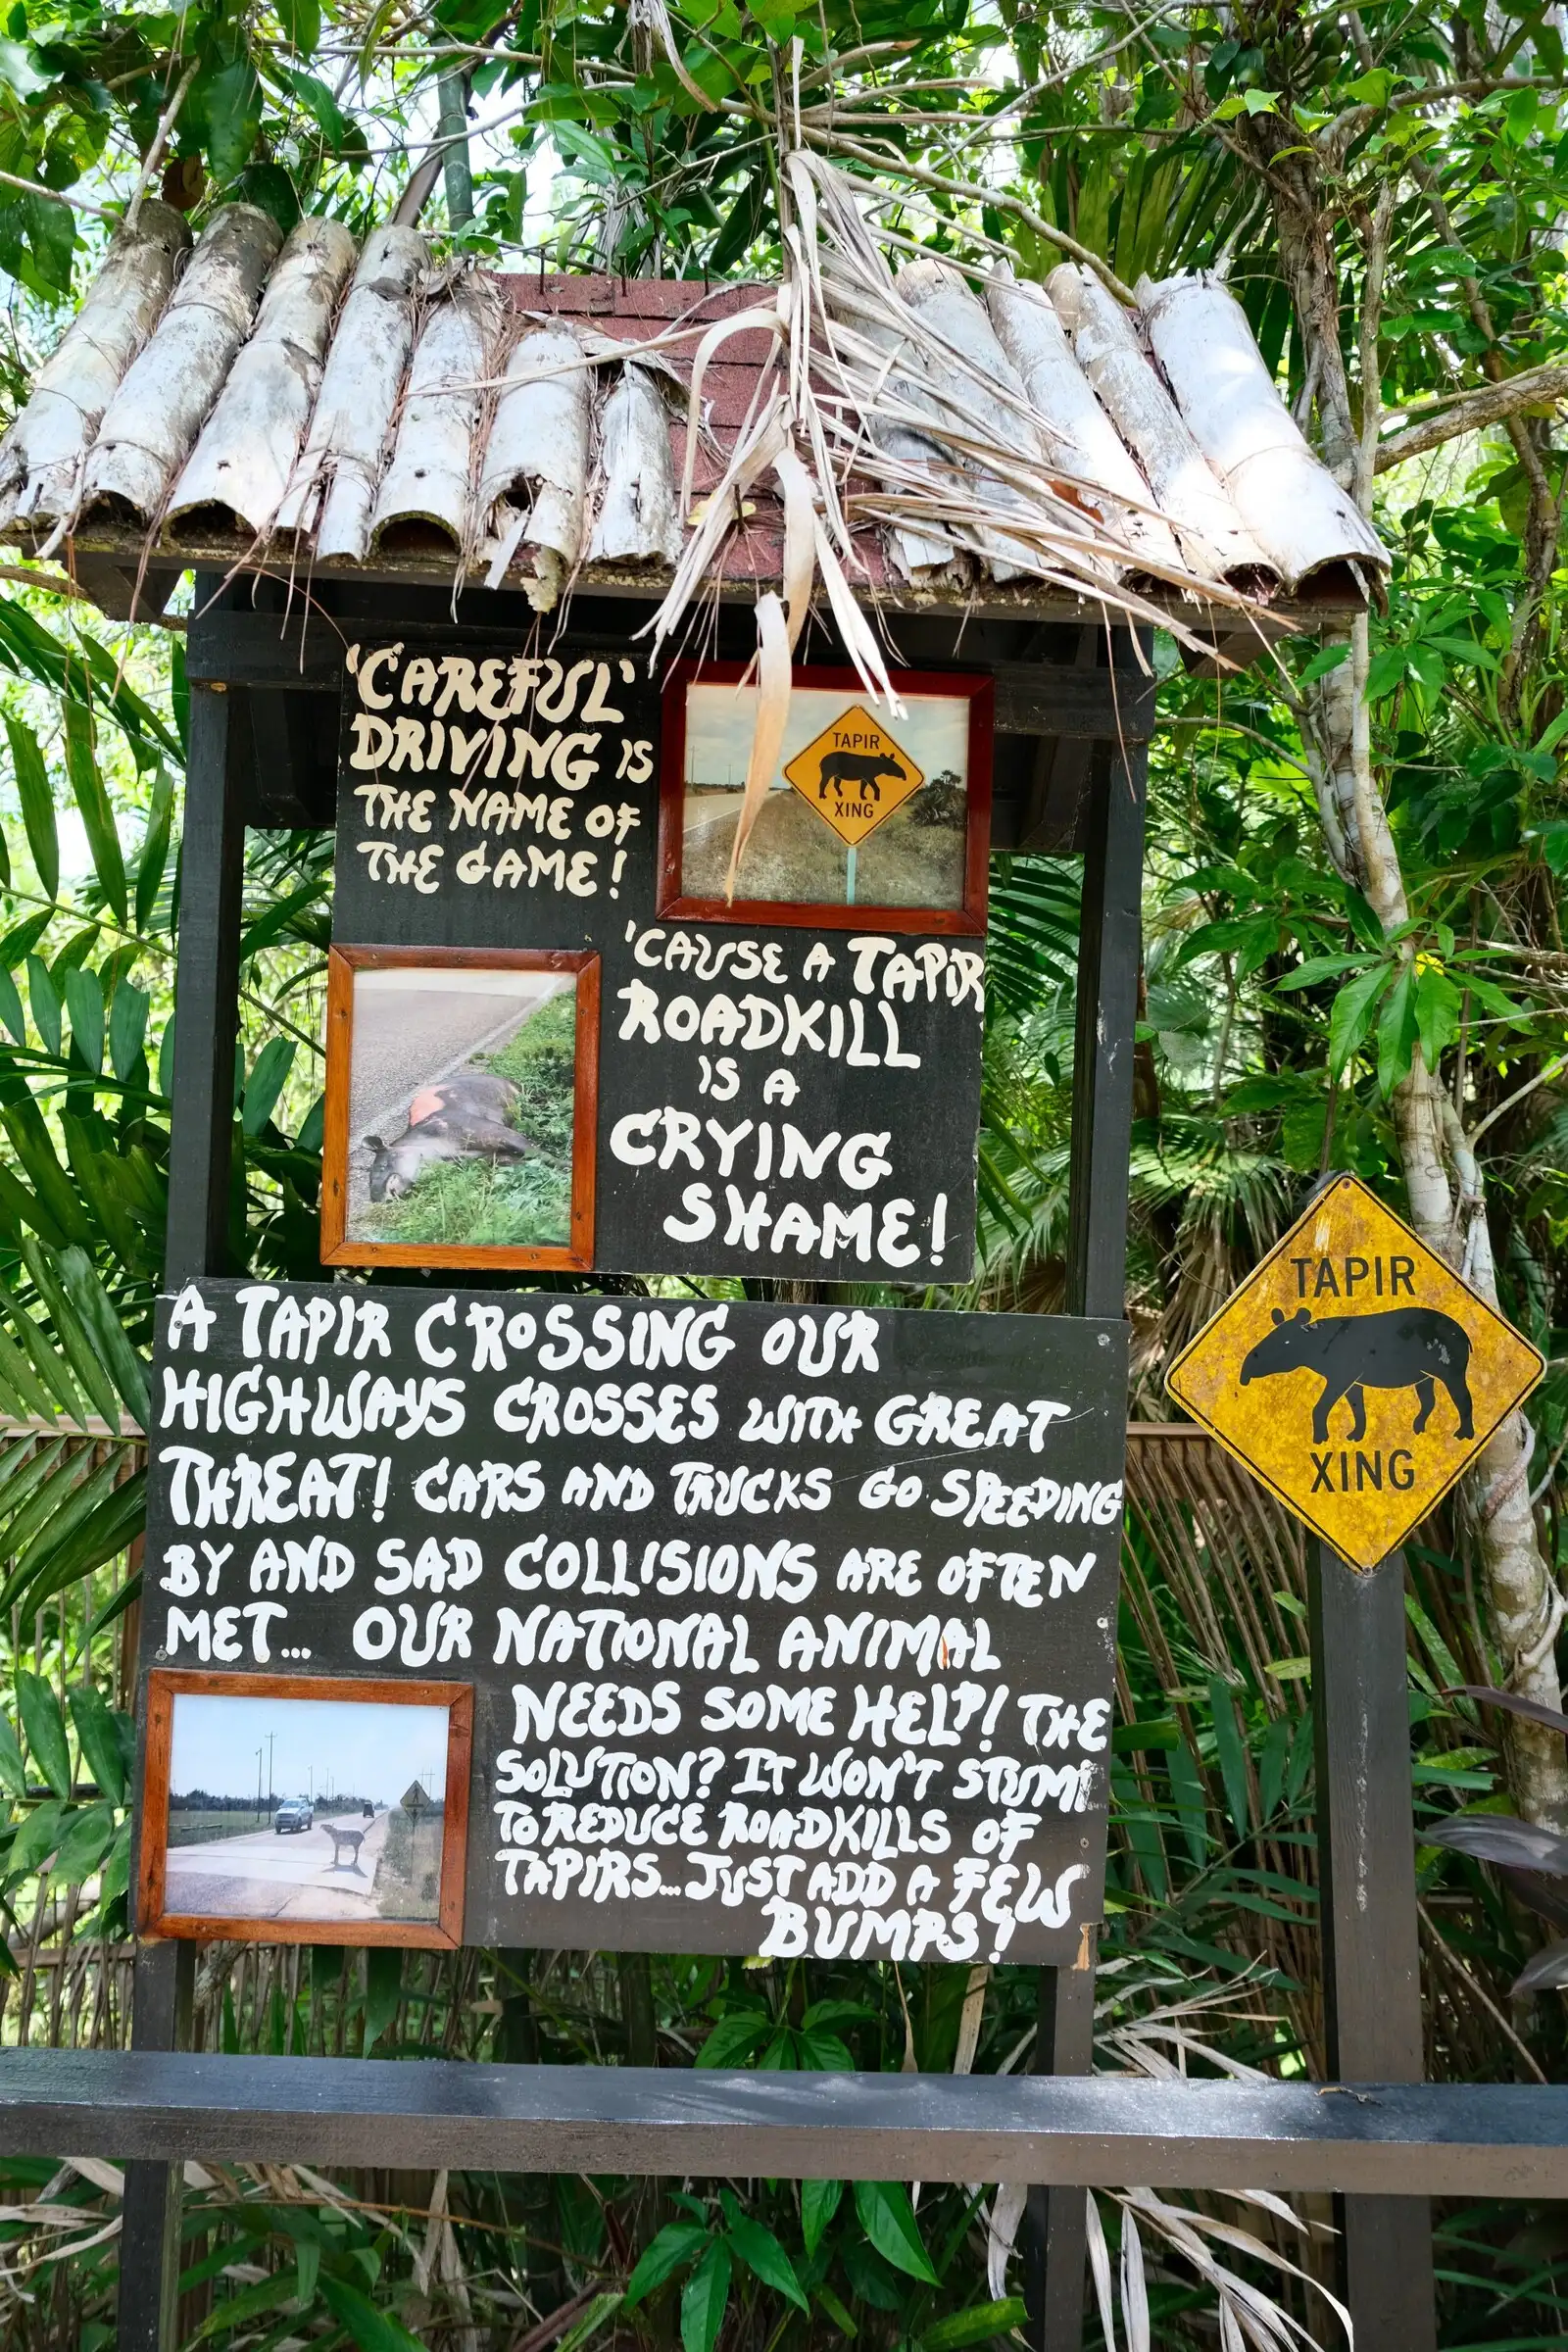 'CAREFUL'
DRIVING IS
THE NAME OF
THE GAME!
TAPIR
XING
'CAUSE A TAPIR
ROADKILL
IS A
CRYING
SHAME!
A TAPIR CROSSING OUR
HIGHWAYS CROSSES WITH GREAT
THREAT! CARS AND TRUCKS GO SPEEDING
BY AND SAD COLLISIONS ARE OFTEN
MET... OUR NATIONAL ANIMAL
NEEDS SOME HELP! THE
SOLUTION? IT WON'T STUMP
TO REDUCE ROADKILLS OF
TAPIRS...JUST ADD A FEW
BUMPS!
TAPIR
XING